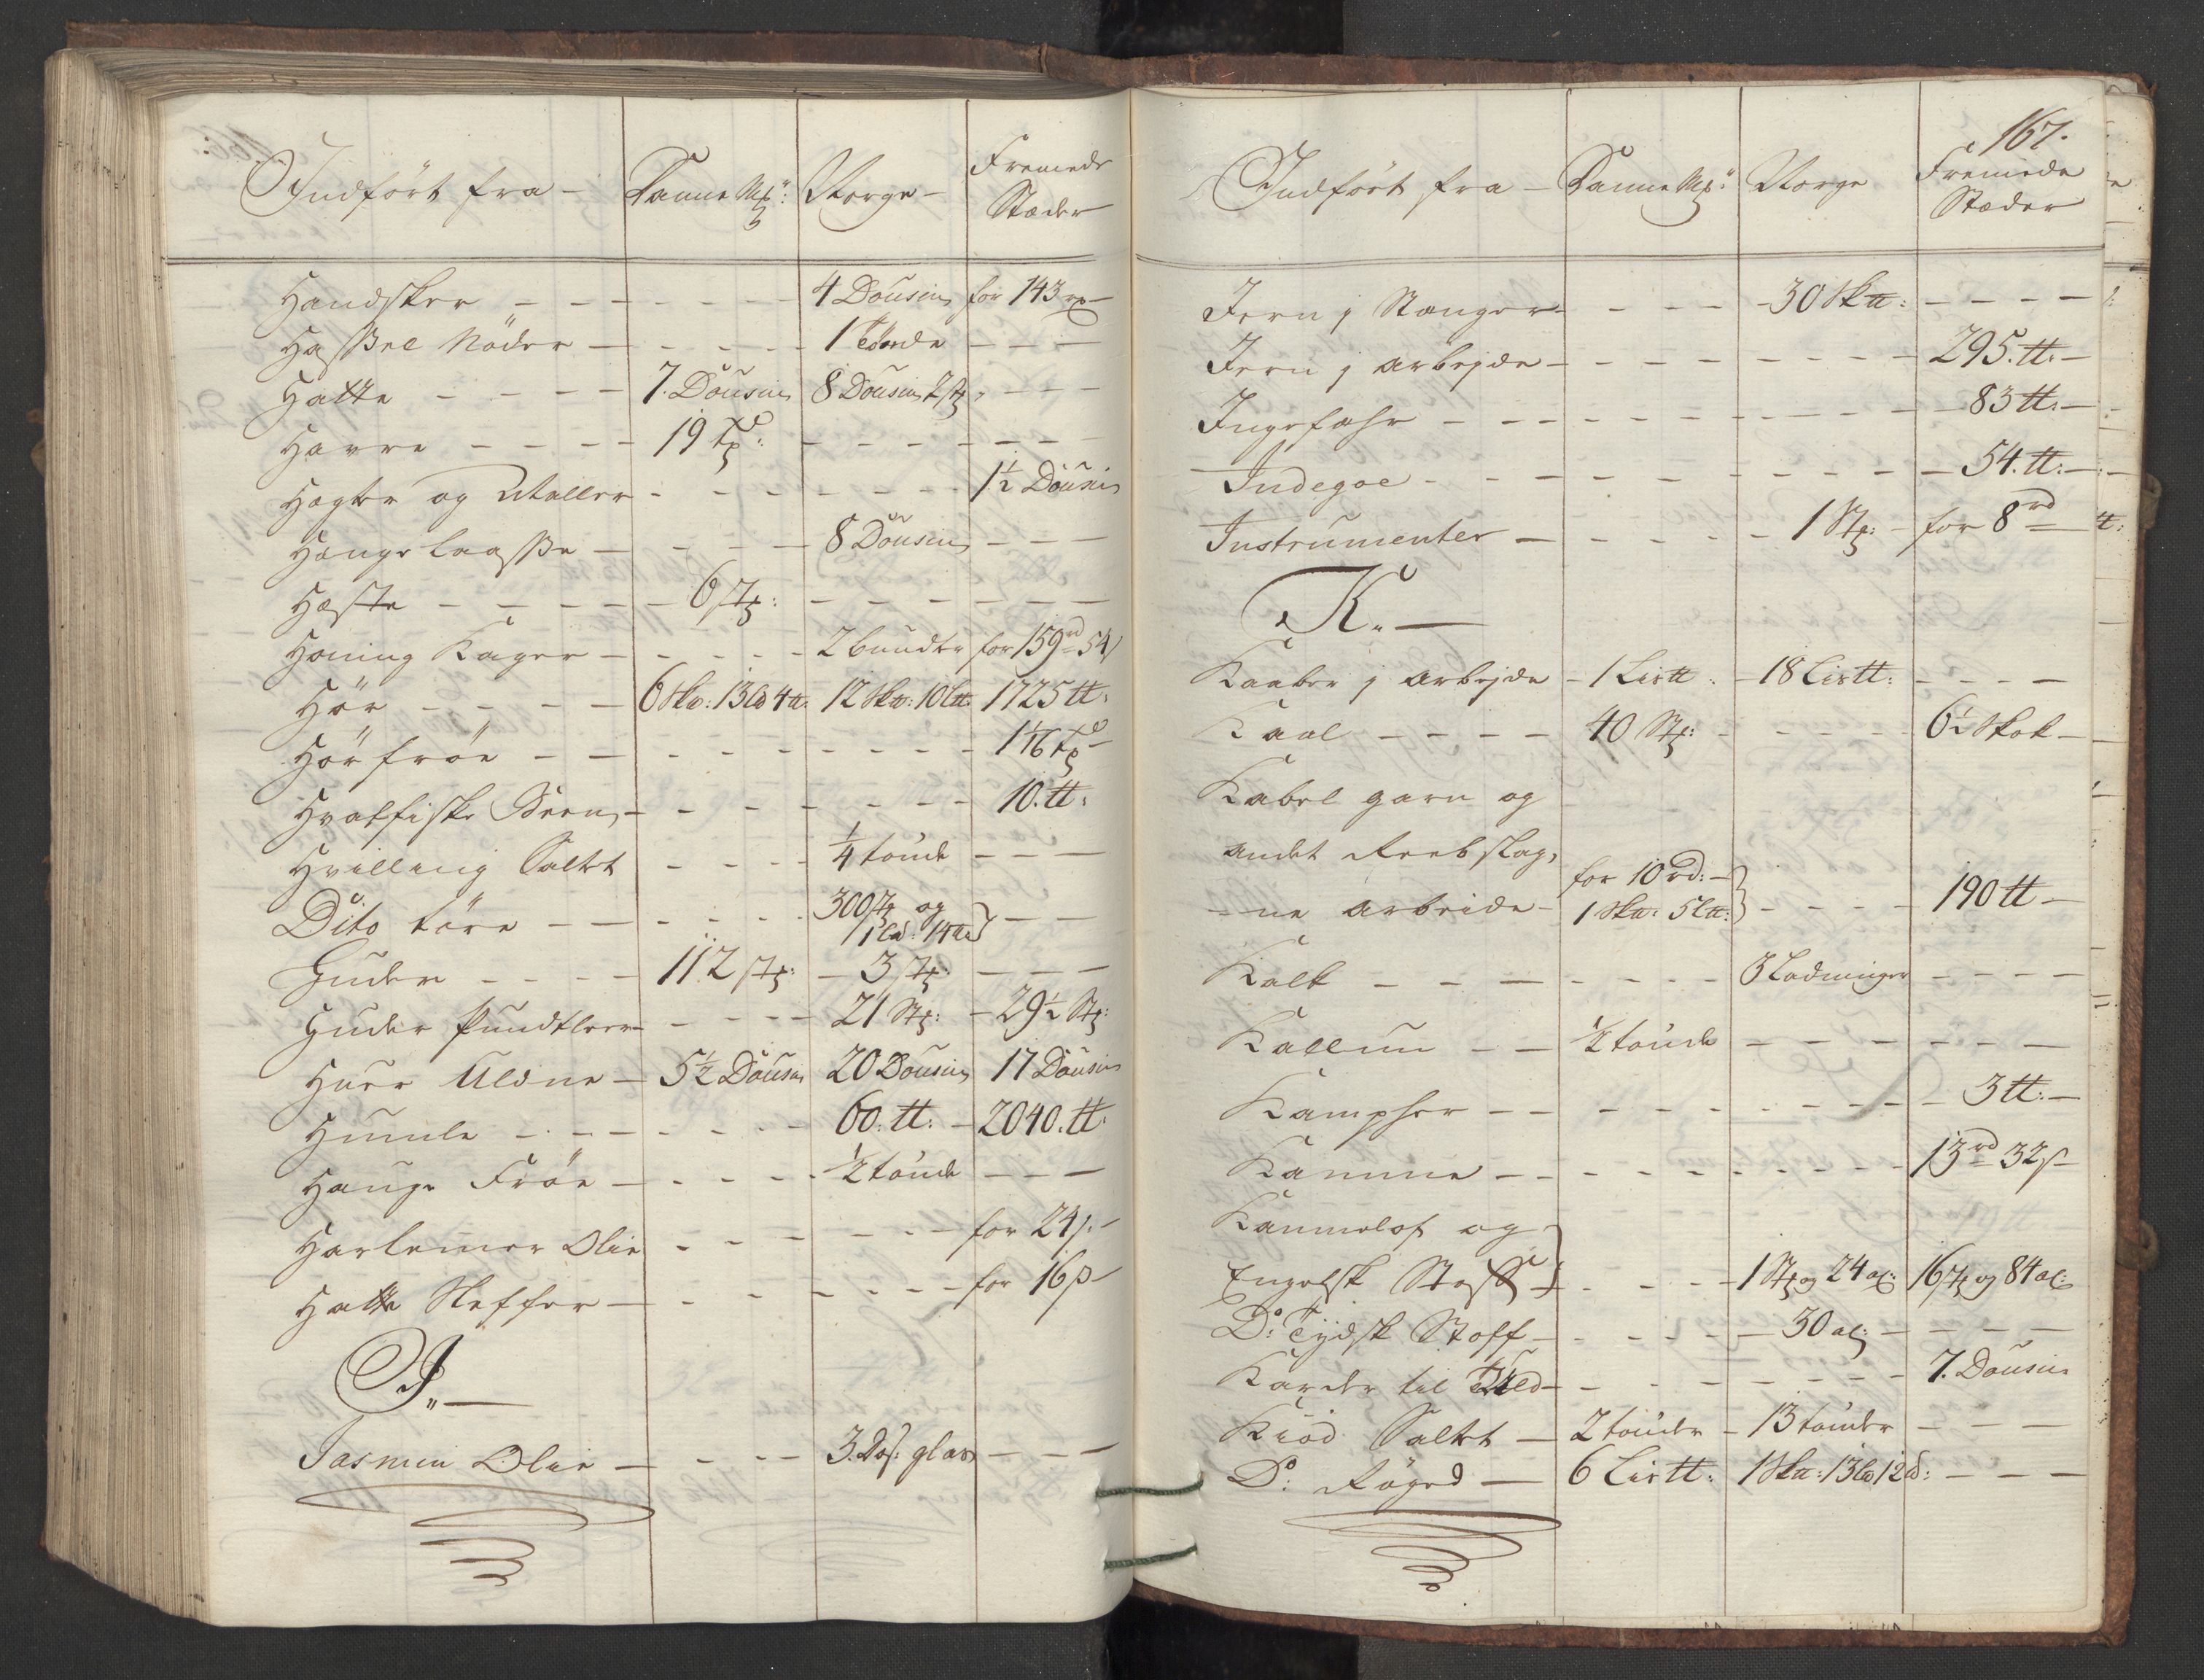 Indført fra – Danne Mk: Norge – Fremede Stæder
Handsker – – – – 4 Dousin for 143 rd –
Hassel Nöder – – – 1 Tönde – – –
Hatte – – – – 7. Dousin 8 Dousin 2 st: – – –
Havre – – – – 19 td: – – – –
Hagter og Maller – – – – 1½ Dousin
Hænge laasse – – – 8 Dousin – – –
Heste – – – – 6 st: – – – –
Honing Kager – – – 2 bundter for 159 rd 54 s
Hör – – – – 6 Sk℔: 13 L℔ 4 ℔: 12 Sk℔: 10 L℔ 1725 ℔:
Hör fröe – – – –
Hvalfiske Been – – – – 10. ℔:
Hvilling Saltet – – – ¼ tönde – – –
Dito törre – – – 300 st og
1 L℔: 14 ℔ – –
Huder – – – – 112 st: – 3 st: – – –
Huder Pundtleer – – – 21 St: – 29½ St:
Huer Uldne – 5½ Dousin 20 Dousin 17 Dousin
Humle – – – – 60. ℔: – 2040. ℔:
Hauge Fröe – – – ½ tönde – – –
Harlemer Olie – – – – for 24 s. –
Hatte – – – – for 16 s –
I„ –
Jasmin Olie – – – 3. Dos: glas – – –
167.
Indført fra – Danne Mk: Norge Fremede Stæder
Jern j Stænger – – – 30 Sk℔: – – – –
Jern j arbejde – – – – 295. ℔: –
Ingefahr – – – – 83 ℔: –
Indegoe – – – – 54. ℔: –
Instrumenter – – – 1 St: – for 8 rd
K„ –
Kaaber j arbejde – 1 Lis℔: – 18 Lis℔: – – –
Kaal – – – – 40 St: – – – 6½ Skok –
Kabel garn og
andet Reebslag,
ne arbeide – for 10 rd: –
1 Sk℔: 5 L℔: – – – 190 ℔ –
Kalk – – – – 3 Ladninger – – – –
Kallun – – ½ tönde – – – –
Kampher – – – – 3 ℔: –
Kamme – – – – 13 rd 32 s –
Kammelot og
Engelsk Stoff – – – 1 St: og 24 al: 16 st og 84 al:
Do: Tydsk Stoff – – – 30 al: – – – –
Karder til Uld – – – – 7. Dousin
Kiöd Saltet – 2 tönder – 13 tönder – – –
Do: Röget – 6 Lis℔: 1 Sk℔: 13 L℔ 12 ℔: – – –